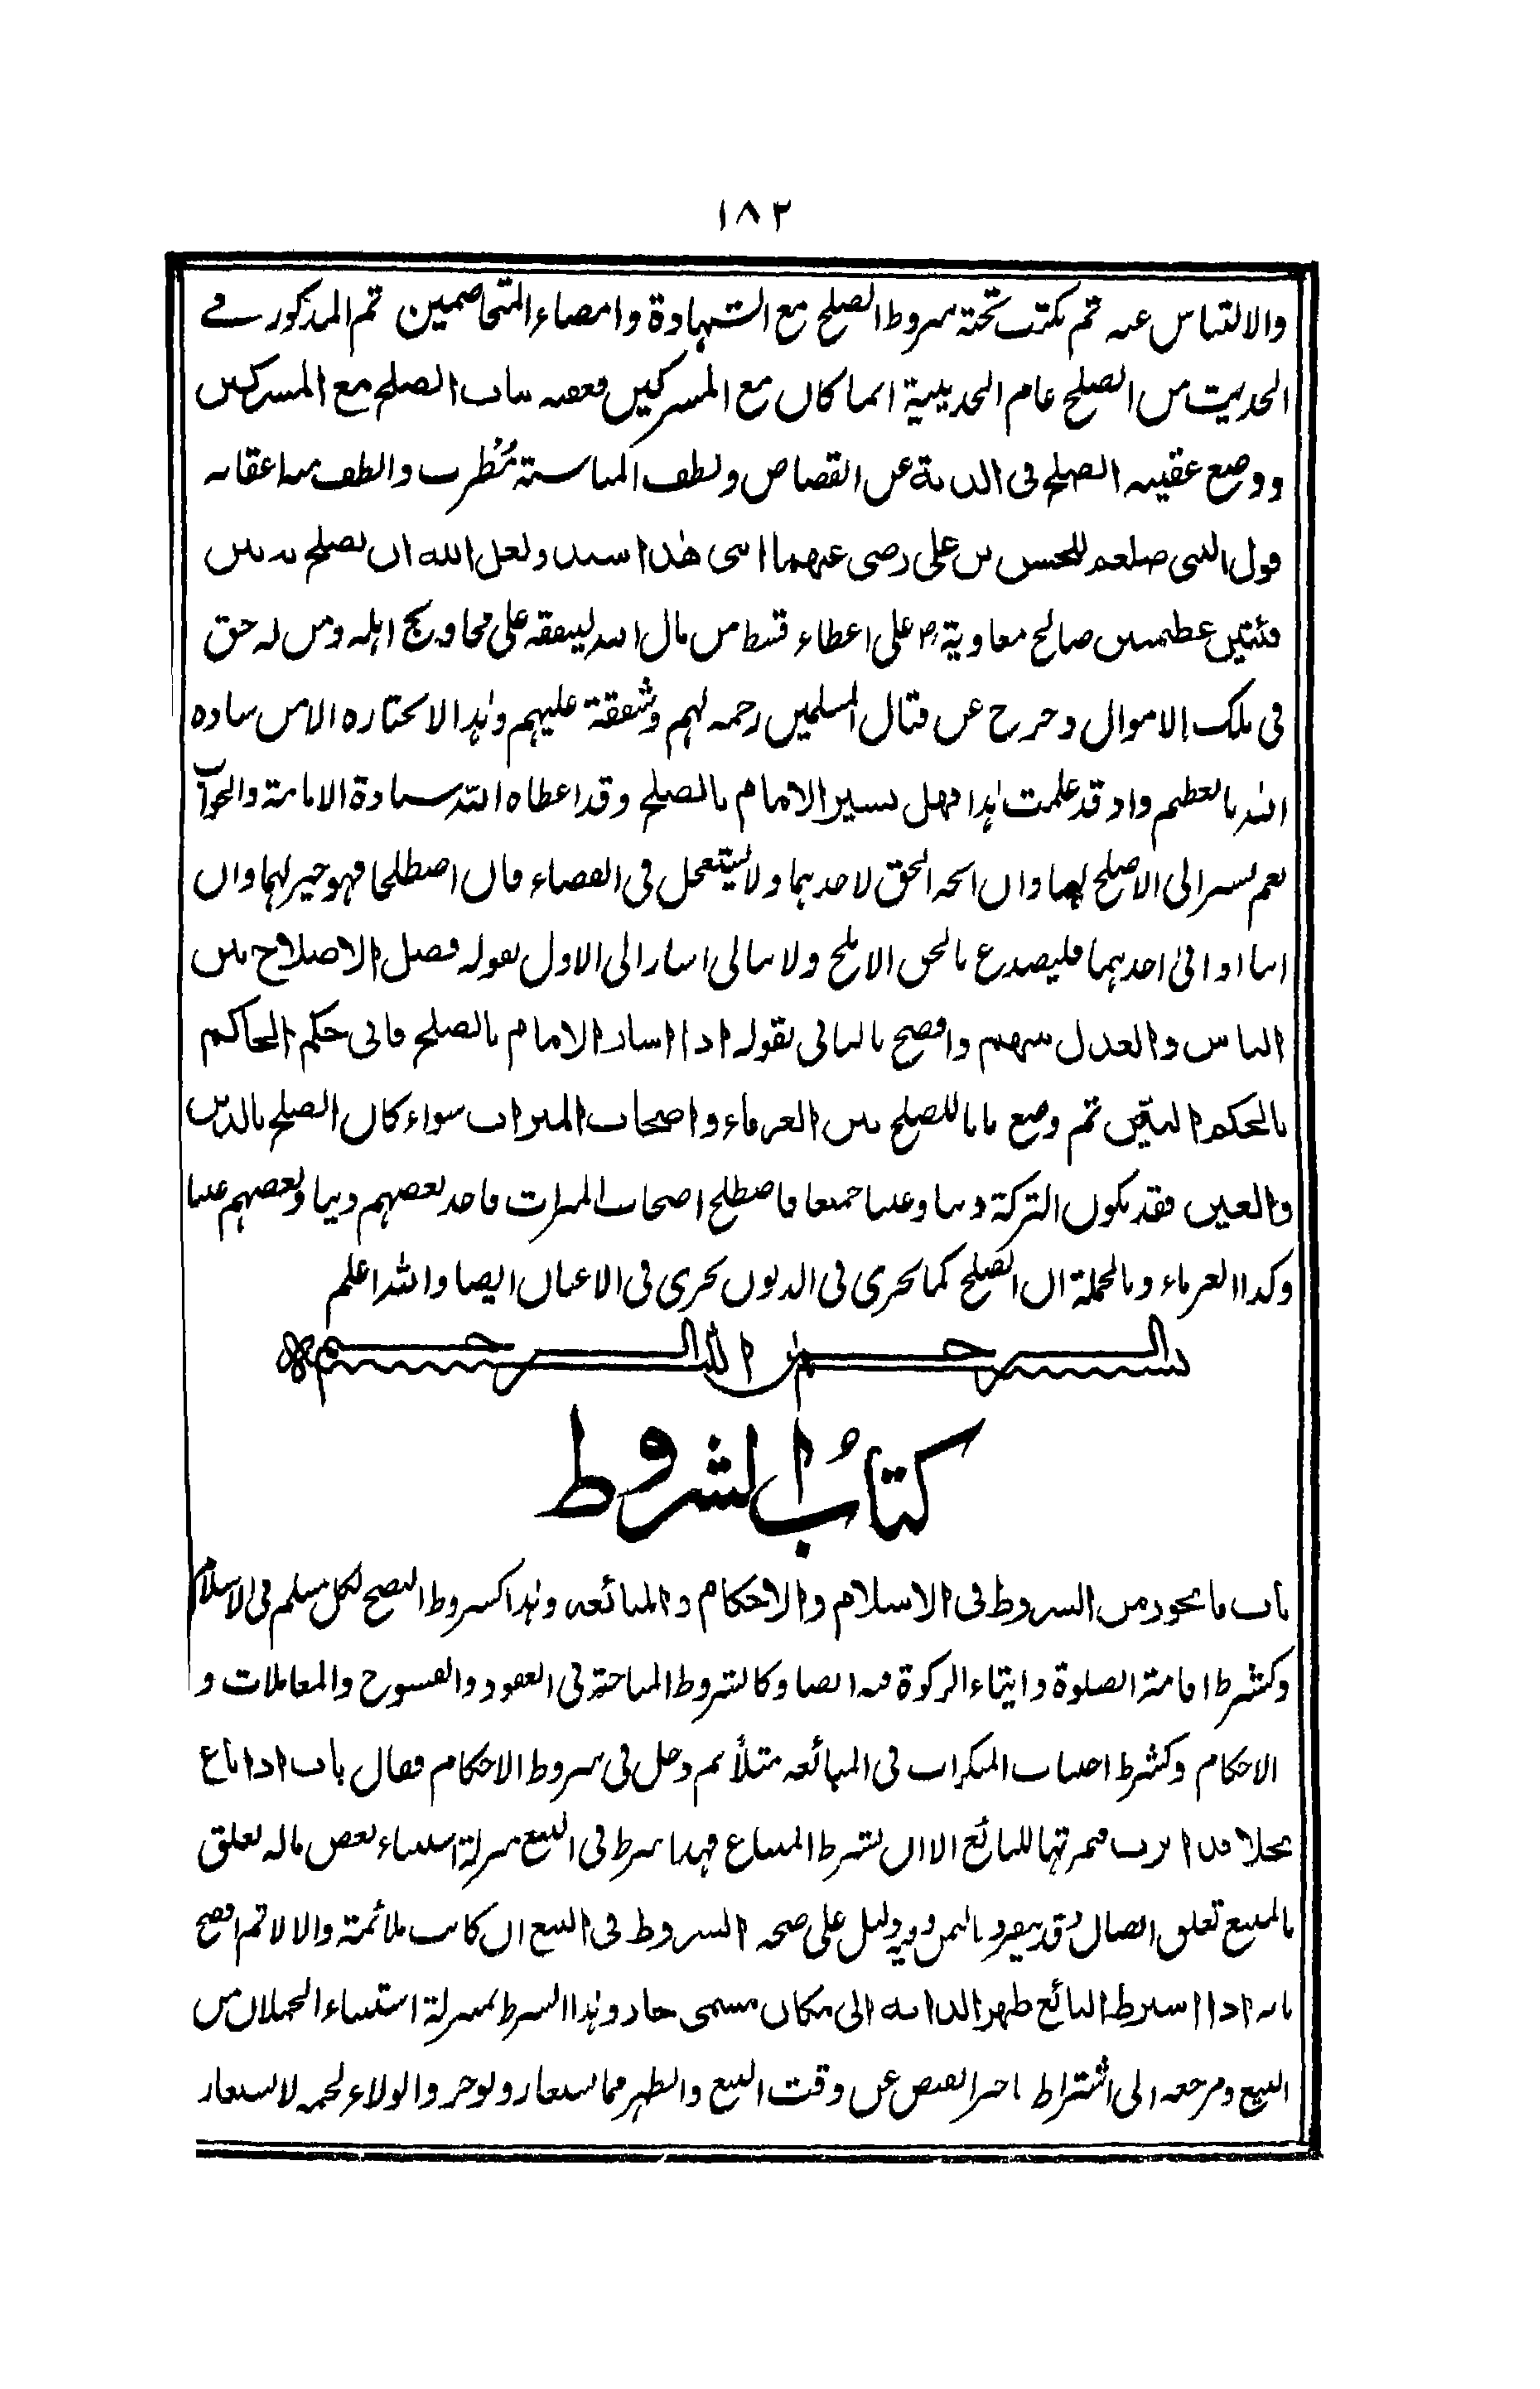 ١٨٢
والالتباس عنه ثم يكتب تحته شروط الصلح مع الشهادة وامضاء المتخاصمين ثم المذكور فے
الحديث من الصلح عام الحديبية انما كان مع المشركين فعقبه بباب الصلح مع المشركين
ووضع عقيبه الصلح فى الدية عن القصاص ولطف المناسبة مُطرب والطف منه اعقابه
قول النبى صلعم للحسن بن على رضى عنهما ابنى هٰذا سيد ولعل الله ان يصلح به بين
فئتين عظيمتين صالح معاوية رض على اعطاء قسط من مال الله لينفقه على محاويج اہله ومن له حق
فى ملك الاموال وخرج عن قتال المسلمين رحمة لهم وشفقة عليهم وہذا لا يختاره الا من ساده
الله بالعظيم واذ قد علمت ہذا فهل يشير الامام بالصلح وقد اعطاه الله سيادة الامامة والجواب
نعم يشير الى الاصلح لهما وان اتجه الحق لاحدہما ولا يستعجل فى القضاء فان اصطلحا فهو خير لهما وان
ابيا او ابى احدہما فليصدع بالحق الابلج ولا يبالى اشار الى الاول بقوله فضل الاصلاح بين
الناس والعدل بينهم وافصح بالثانى بقوله اذا اشار الامام بالصلح فابى حكم الحاكم
بالحكم البيّن ثم وضع بابا للصلح بين الغرماء واصحاب الميراث سواء كان الصلح بالدين
والعين فقد يكون التركة دينا وعينا جميعا فاصطلح اصحاب الميراث فاخذ بعضهم دينا وبعضهم عينا
وكذا الغرماء وبالجملة ان الصلح كما يجرى فى الديون يجرى فى الاعيان ايضا والله اعلم
بسم الله الرحمن الرحيم
كتابُ الشروط
باب ما يجوز من الشروط فى الاسلام والاحكام والمبائعة وہذا كشروط النصح لكل مسلم فى الاسلام
وكشرط اقامة الصلوة وايتاء الزكوة فيه ايضا وكالشروط المباحة فى العقود والفسوخ والمعاملات و
الاحكام وكشرط اجتناب المنكرات فى المبائعة مثلاً ثم دخل فى شروط الاحكام فقال باب اذا باع
نخلا قد ابرت فثمرتها للبائع الا ان يشترط المبتاع فهذا شرط فى البيع بمنزلة استثناء بعض ماله تعلق
بالمبيع تعلق اتصال وقد يفرد بالثمن وفيه دليل على صحة الشروط فى البيع ان كانت ملائمة والا لا ثم افصح
بانه اذا اشترط البائع ظهر الدابة الى مكان مسمى جاز وہذا الشرط بمنزلة استثناء الحملان من
البيع ومرجعه الى اشتراط تاخير القبض عن وقت البيع والظهر مما يستعار ويوجر والولاء لحمة لا يستعار